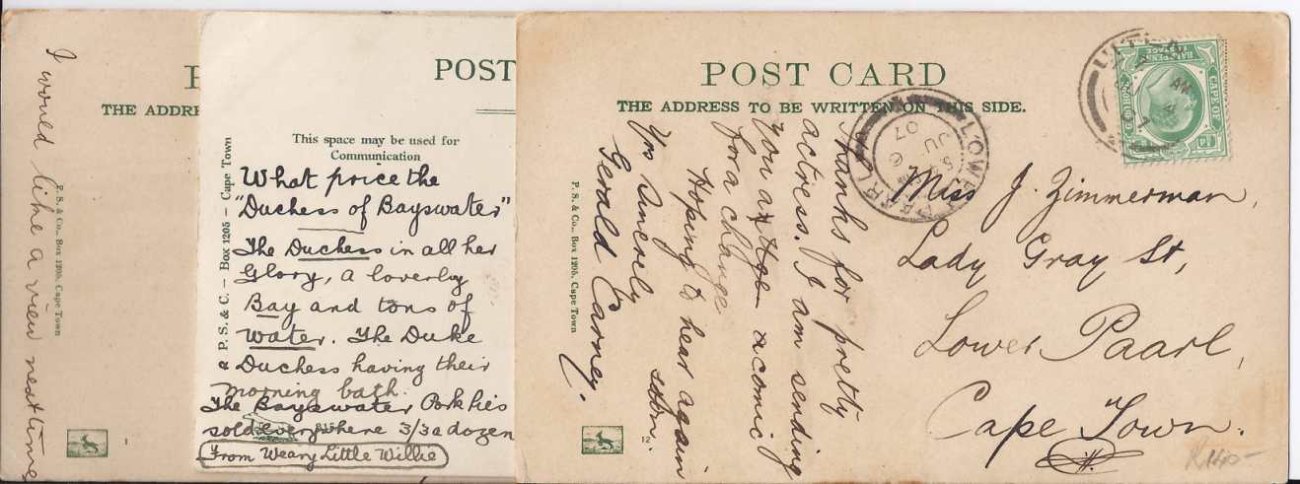 I would like a view next time
THE ADDRE
P. S. & Co., Box 1205, Cape Town
POST
This space may be used for
Communication
P. S. & C. – Box 1205 – Cape Town
What price the
"Duchess of Bayswater"
The Duchess in all her
Glory, a loverly
Bay and tons of
Water. The Duke
& Duchess having their
morning bath.
The Bayswater Pork Pies
sold everywhere 3/3 a dozen
From Weary Little Willie
POST CARD
THE ADDRESS TO BE WRITTEN ON THIS SIDE.
P. S. & Co., Box 1205, Cape Town
12
Thanks for pretty
actress. I am sending
you a comic
for a change
Hoping to hear again
soon.
Yrs Sincerely
Gerald Carney.
Miss J. Zimmerman,
Lady Gray St,
Lower Paarl,
Cape Town.
LOWER PAARL
JU
07
CAPE OF GOOD HOPE
HALF PENNY
POSTAGE